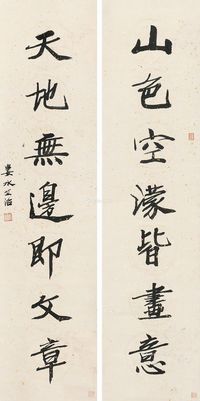 山色空濛皆畫意
天地無邊即文章
婁水王治